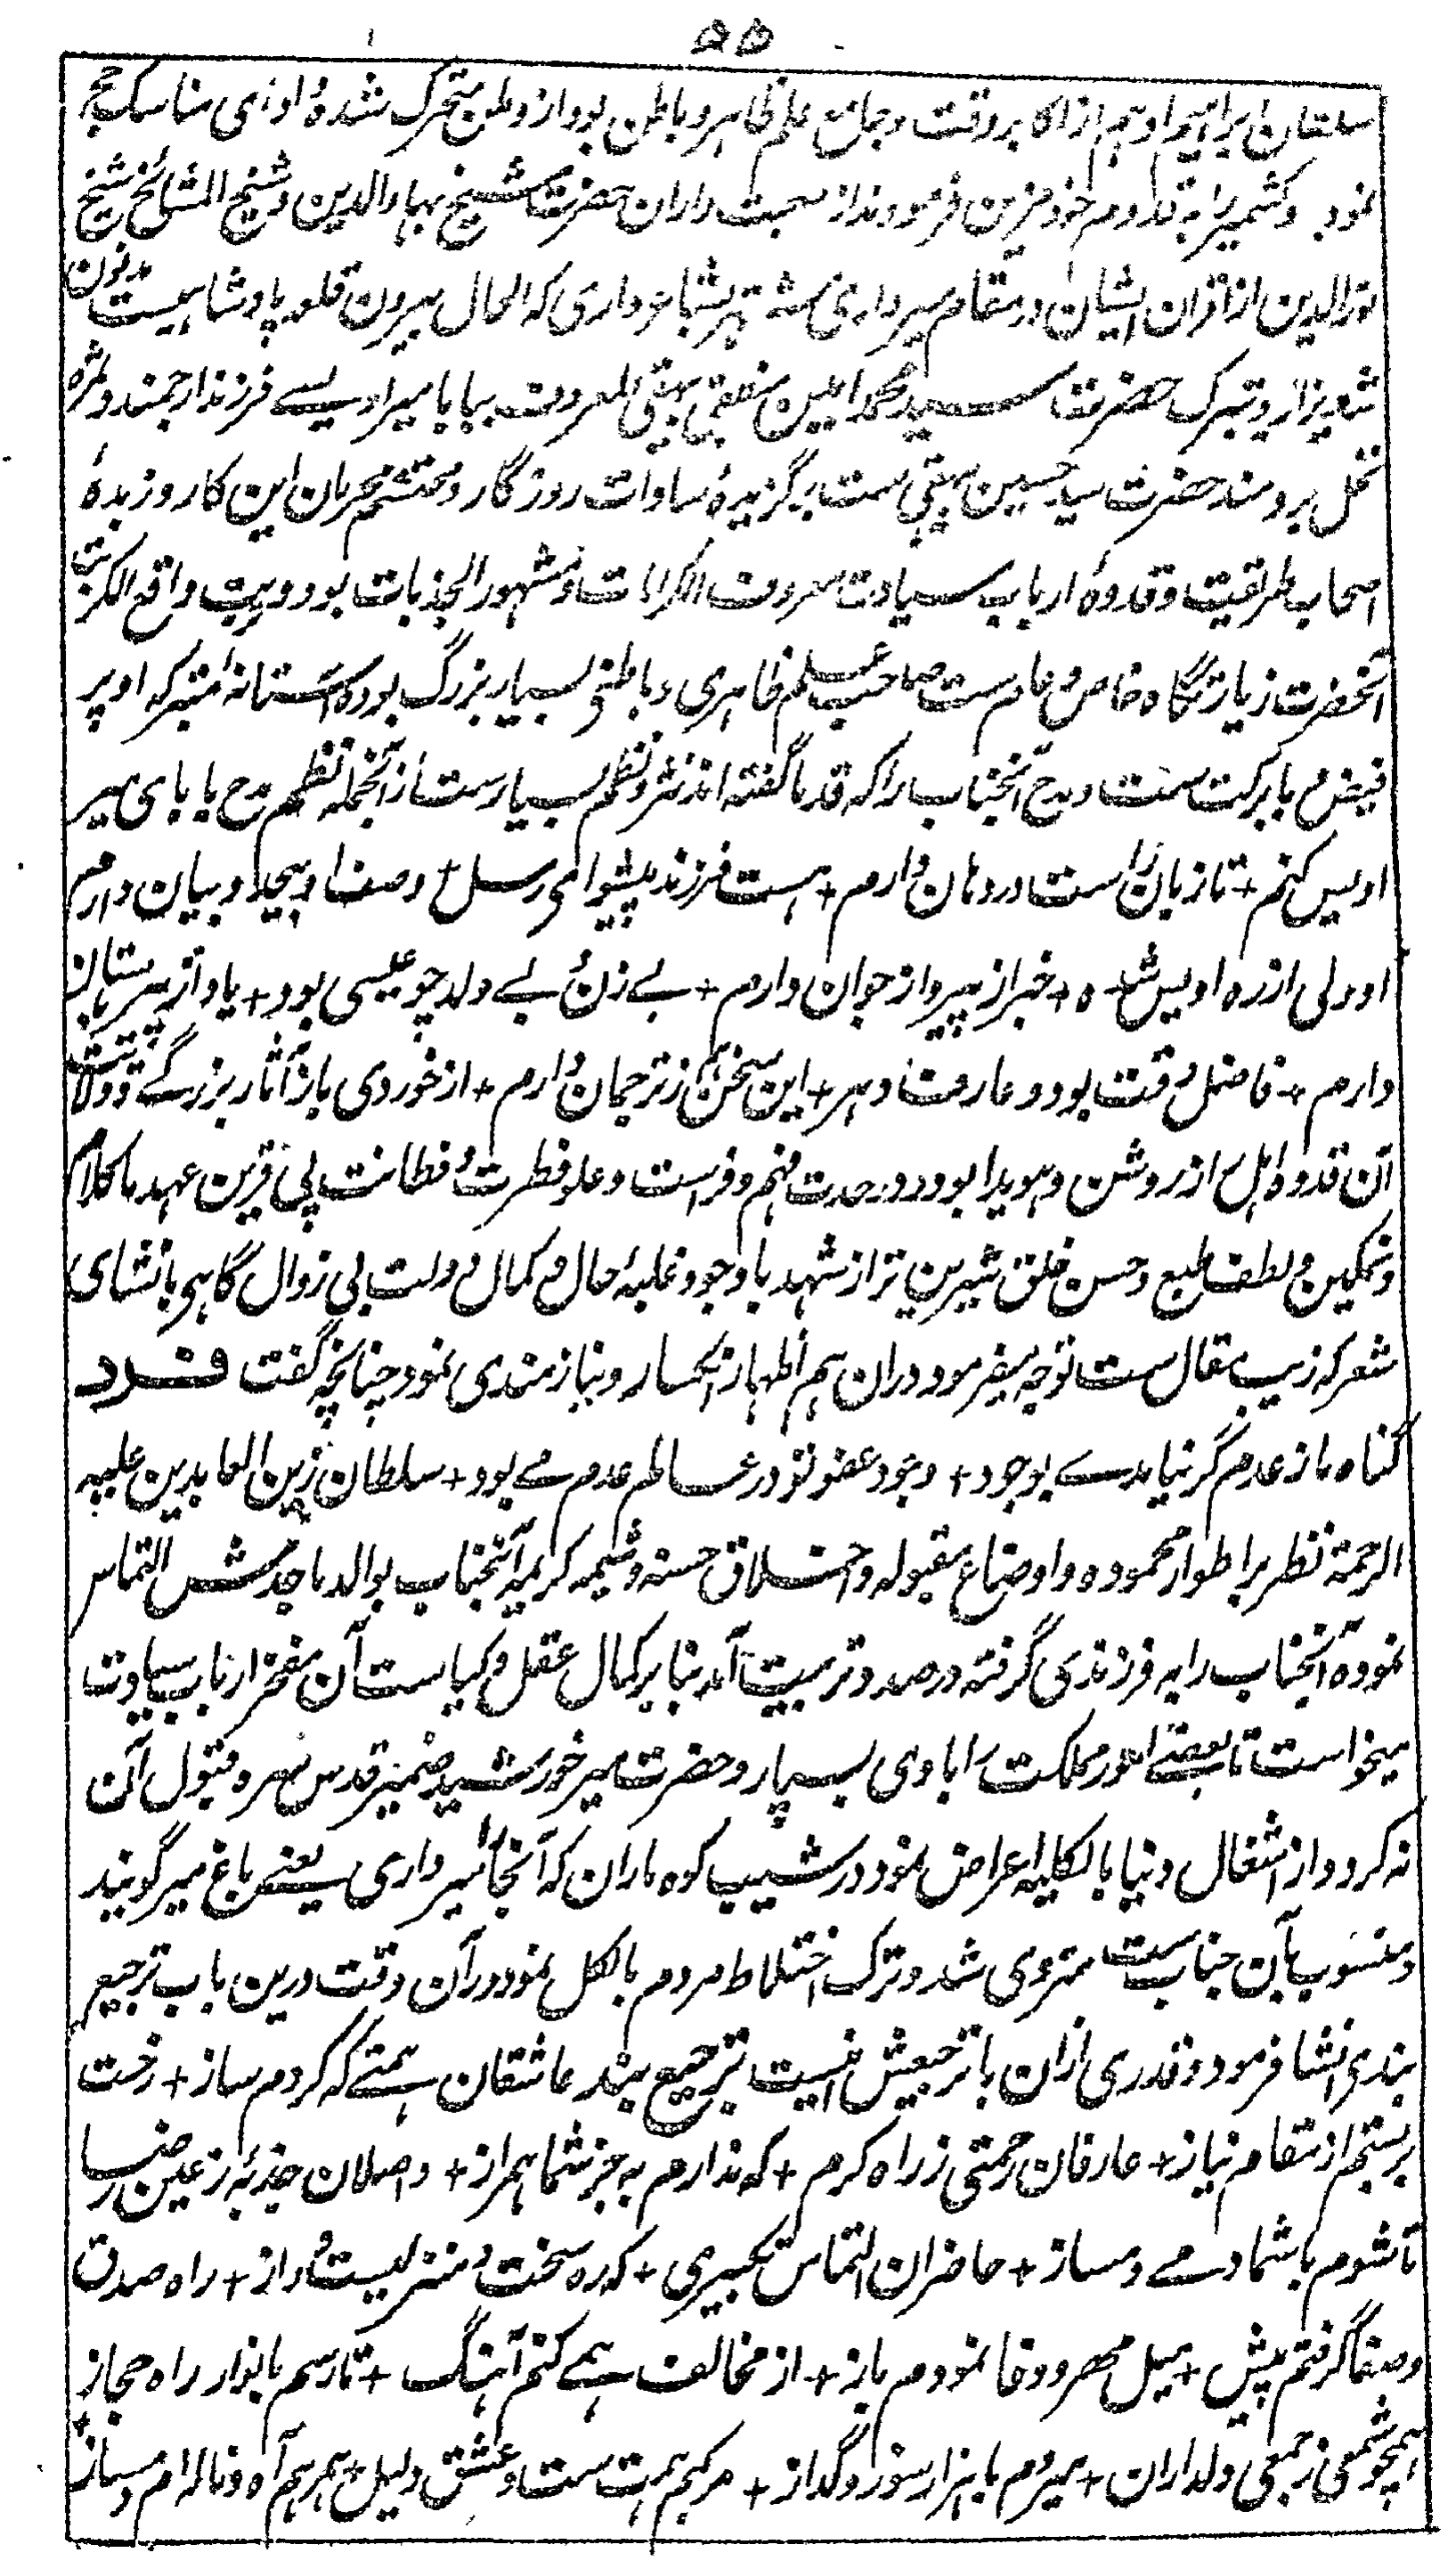 ۵۵
سلطان ابراهیم ادهم از اکابر وقت و جامع علم ظاهر و باطن بود از وطن متحرک شده ادای مناسک حج
نمود و کشمیر را به قدوم خود مزین فرمودند از صحبت داران حضرت شیخ بهاءالدین و شیخ المشائخ شیخ
نورالدین از اقران ایشان در مقام میرداری مشتهر بشاعرواری که الحال بیرون قلعه پادشاهیست مدفون
حضرت سید محمد امین منطقی بیهقی المعروف ببابا میر اویسے فرزند ارجمند و ثمره
نخل برومند حضرت سید حسین بیهقی ست برگزیدهٔ سادات روزگار و محتشم محرمان این کار و زبدهٔ
اصحاب طریقت و قدوهٔ ارباب سیادت معروف الکرامات و مشهور الجذبات بود و بیت واقع الکربت
آنحضرت زیارتگاه خاص و عام ست صاحب علم ظاهری و باطنی بسیار بزرگ بوده آستانه متبرکه او پر
فیض و با برکت ست و مدح آنجناب را که قدما گفته اند نثر و نظم بسیارست از آنجمله نظم مدح بابای میر
اویس کنم + تا زبان راست در دهان دارم + هست فرزند پیشوای رسل + وصف او بیحد و بیان دارم
او ولی از ره اویس شده + خبر از پیر و از جوان دارم + بے زن و بے ولد چو عیسی بود + یاد از پیرستان
دارم + فاضل وقت بود و عارف دهر + این سخن هم ز ترجمان دارم + از خوردی باز آثار بزرگے و ولایت
آن قدوه اهل راز روشن و هویدا بود و در حدت فهم و فراست و علو فطرت و فطانت بی قرین عهد با کلام
نمکین و لطف طبع و حسن خلق شیرین تر از شهد با وجود غلبهٔ حال و کمال دولت بی زوال گاهی بانشای
شعر که زیب مقال ست توجه میفرمود و دران هم اظهار انکسار و نیازمندی نمود چنانچه گفت فرد
گناه ما ز عدم گر نیامدے بوجود + وجود عفو تو در عالم عدم مے بود + سلطان زین العابدین علیه
الرحمة نظر بر اطوار محموده و اوضاع مقبوله و اخلاق حسنه و شیمه کریمه آنجناب بوالد ماجدش التماس
نموده آنجناب را به فرزندی گرفته در صدد تربیت آمد بنا بر کمال عقل و کیاست آن مفخر ارباب سیادت
میخواست تا بعضے امور مملکت را با وی بسپارد حضرت میر خورشید ضمیر قدس سره قبول آن
نه کرد و از اشغال دنیا بالکلیه اعراض نمود در شیب کوه ماران که آنجا را میرداری یعنے باغ میر گویند
و منسوب بآن جناب ست منزوی شد و ترک اختلاط مردم بالکل نمود در آن وقت درین باب ترجیع
بندی انشا فرمود و قدری ازان با ترجیعش اینست ترجیع بند عاشقان همتے که کردم ساز + رخت
بربستم از مقام نیاز + عارفان رحمتی ز راه کرم + که ندارم به جز شما همراز + واصلان جذبهٔ ز عین رضا
تا شوم با شما دمے دمساز + حاضران التماس تکبیری + که ره سخت و منزلیست دراز + راه صدق
و صفا گرفتم پیش + میل مهر و وفا نمودم باز + از مخالف همے کنم آهنگ + تا رسم بانوار راه حجاز
همچو شمعی ز جمعی دلداران + میروم با هزار سوز و گداز + مرکبم همت ست و عشق دلیل + همرهم آه و ناله ام دمساز +